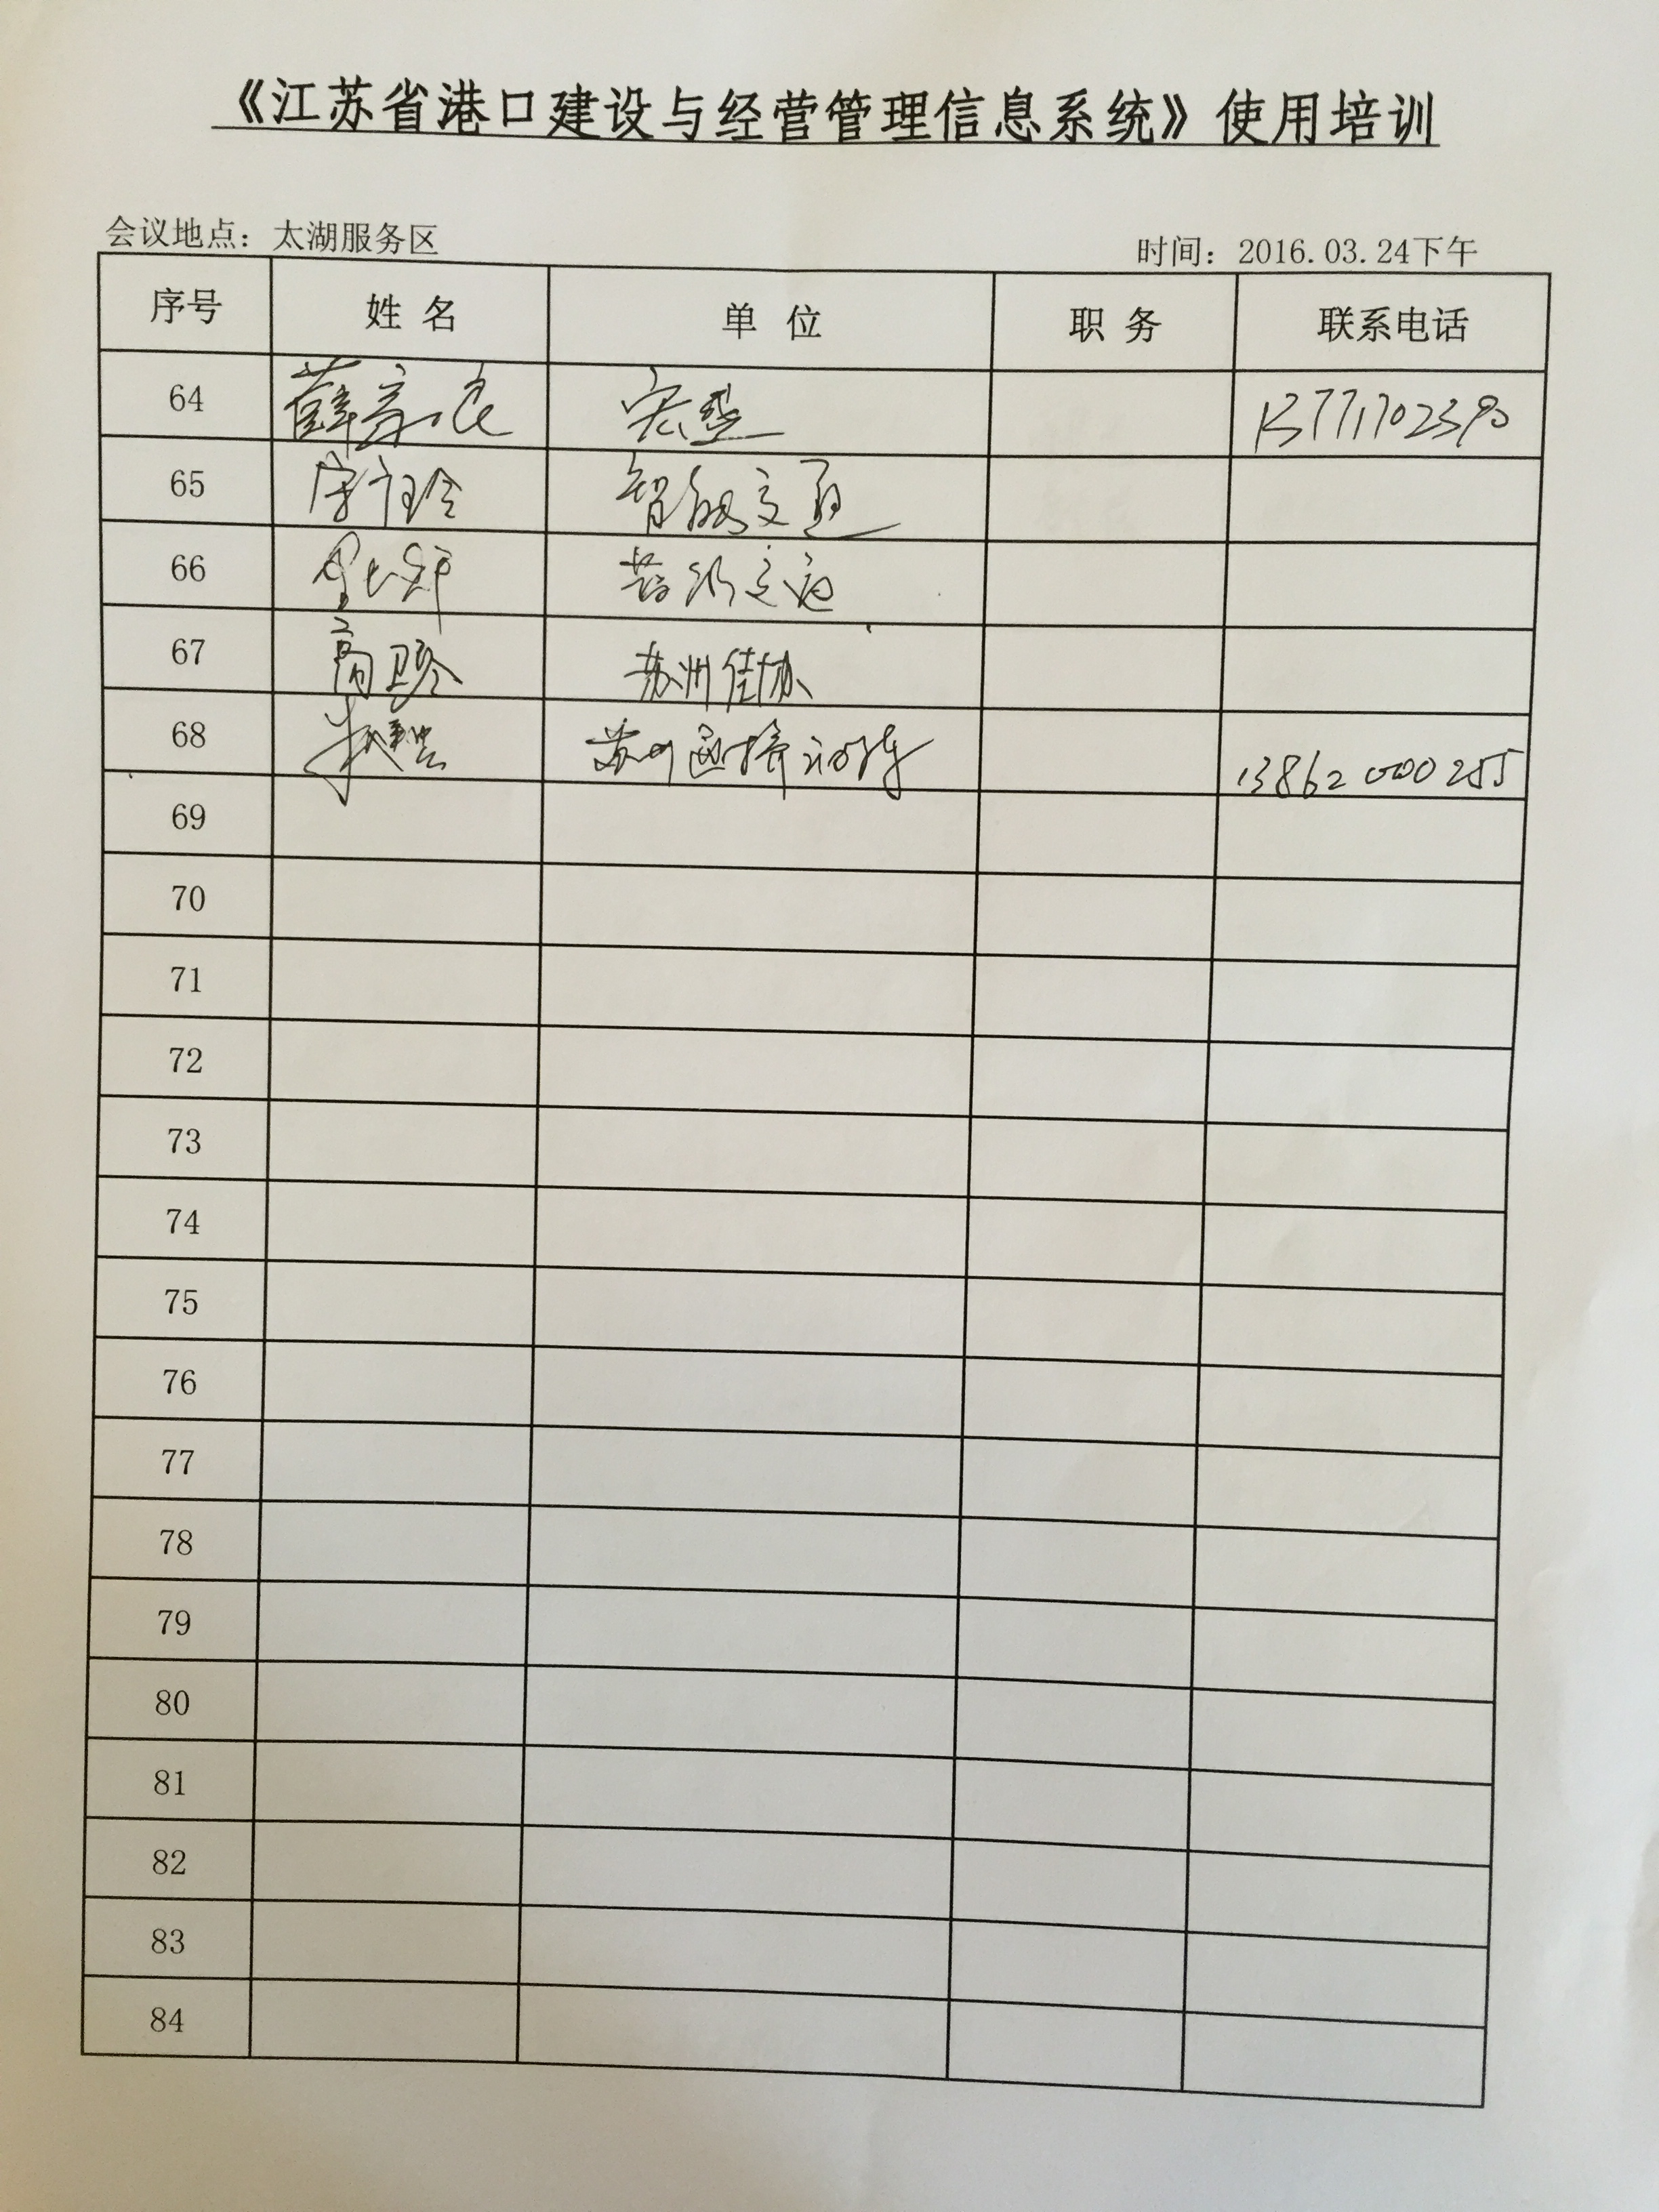 《江苏省港口建设与经营管理信息系统》使用培训
会议地点：太湖服务区 时间：2016.03.24下午
序号 姓 名 单 位 职 务 联系电话
64 薛 良 宏盛 13771702390
65 智能交通
66
67 高 苏州佳协
68 朱 苏州 13862000255
69
70
71
72
73
74
75
76
77
78
79
80
81
82
83
84